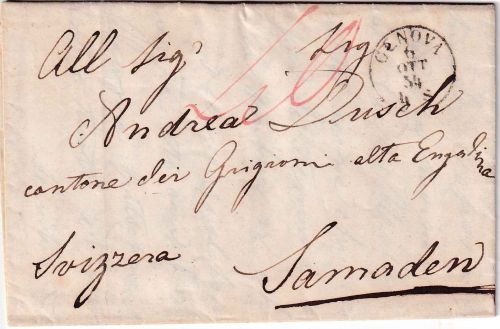 All Sig.r Sig.
Andrea Dusch
cantone dei Grigioni alta Engadina
Svizzera
Samaden
GENOVA
6
OTT
54
10